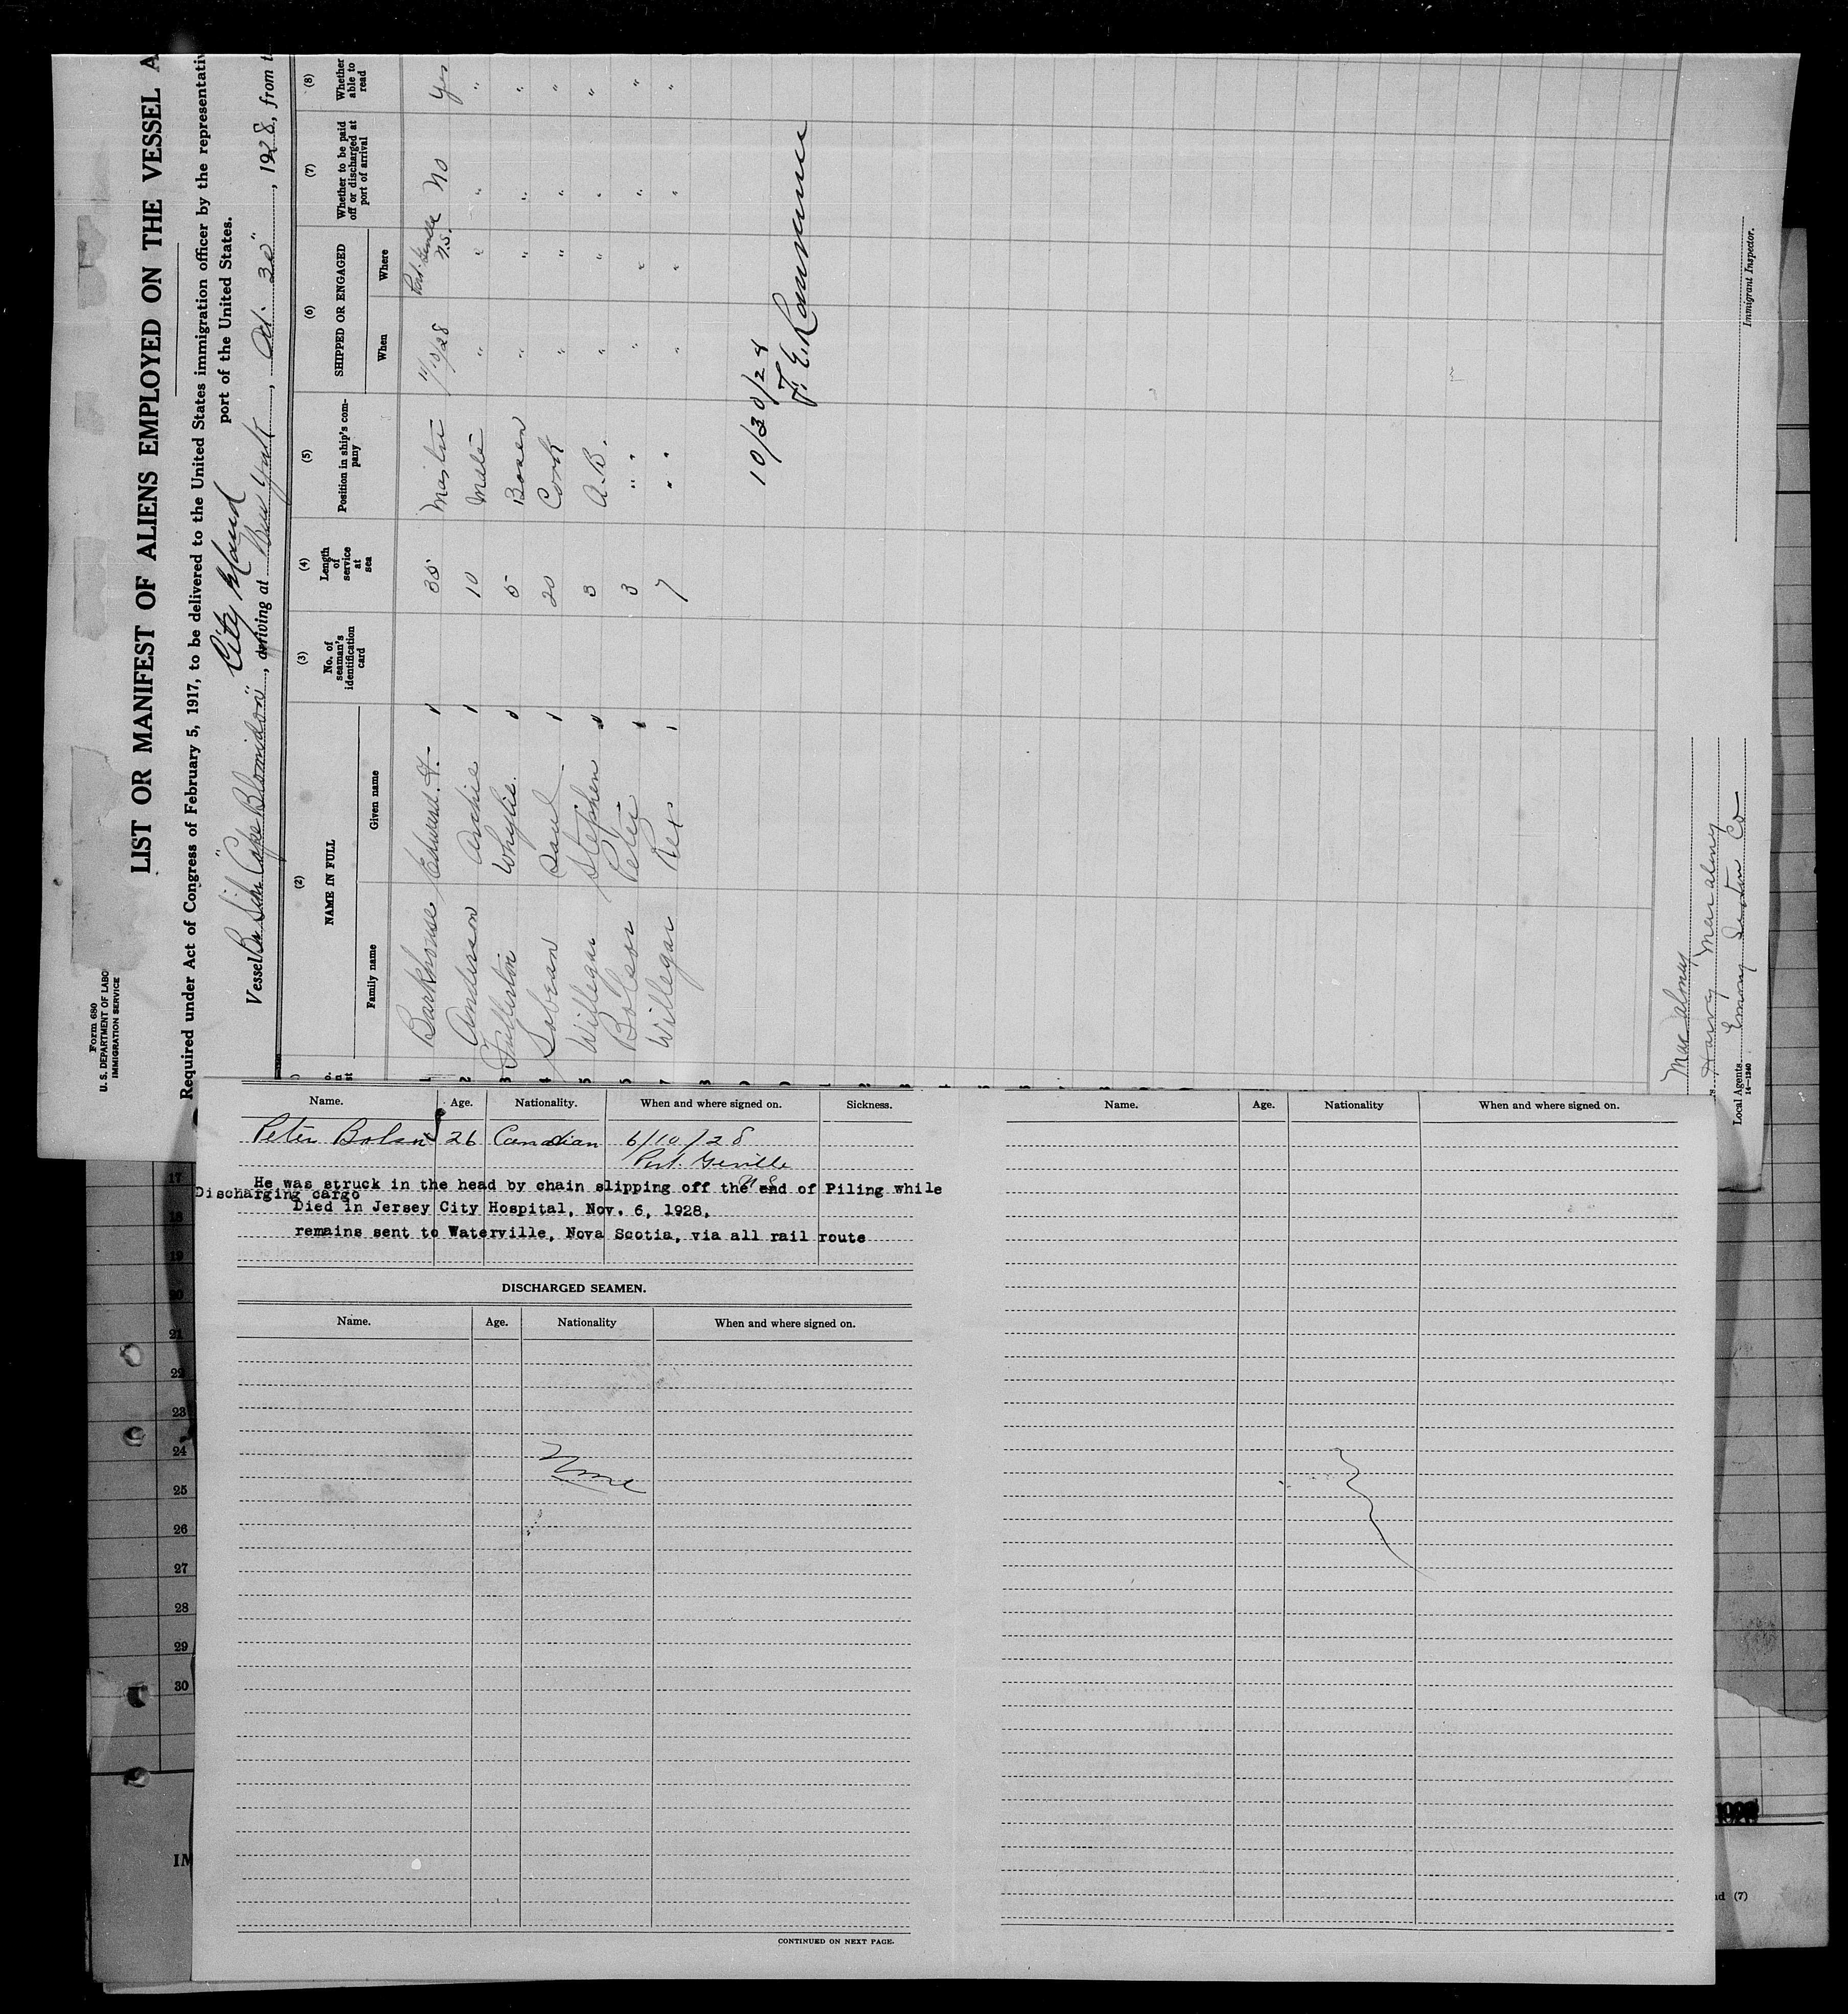 Form 680
U. S. DEPARTMENT OF LABO
IMMIGRATION SERVICE
LIST OR MANIFEST OF ALIENS EMPLOYED ON THE VESSEL A
Required under Act of Congress of February 5, 1917, to be delivered to the United States immigration officer by the representativ
port of the United States.
City Island
Vessel "Cape Blomidon", arriving at New York, Oct. 30", 1928, from t
(2) (3) (4) (5) (6) (7) (8)
NAME IN FULL No. of seaman's identification card Length of service at sea Position in ship's company SHIPPED OR ENGAGED Whether to be paid off or discharged at port of arrival Whether able to read
Family name Given name When Where
1 Barkhouse Edward. 35 Master /10/28 Port Greville N.S. No Yes
2 Anderson Archie 10 Mate " " " "
3 Fullerton Whylie. 5 Bosen " " " "
4 20 Cook " " " "
5 Willegar Stephen 3 A.B. " " " "
6 Bolson Peter 3 " " " " " "
7 Willegar Rex 7 " " " " " "
10/30/28
F. E.
Immigrant Inspector.
Harry
Local Agents
14—1240
Name. Age. Nationality. When and where signed on. Sickness.
Peter Bolson 26 Canadian 6/10/28
Port. Greville
N S
He was struck in the head by chain slipping off the end of Piling while
Discharging cargo
Died in Jersey City Hospital, Nov. 6, 1928.
remains sent to Waterville, Nova Scotia, via all rail route
DISCHARGED SEAMEN.
Name. Age. Nationality When and where signed on.
None
CONTINUED ON NEXT PAGE.
Name. Age. Nationality When and where signed on.
17
18
19
20
21
22
23
24
25
26
27
28
29
30
IM
nd (7)